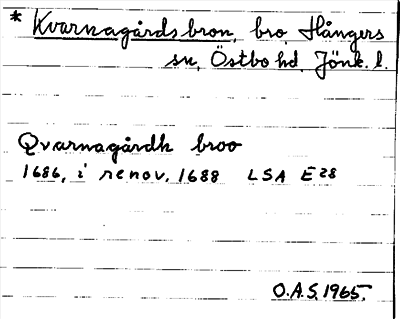 * Kvarnagårdsbron, bro, Hångers
sn, Östbo hd, Jönk. l.
Qvarnagårdh broo
1686, i renov. 1688 LSA E28
O.A.S. 1965.